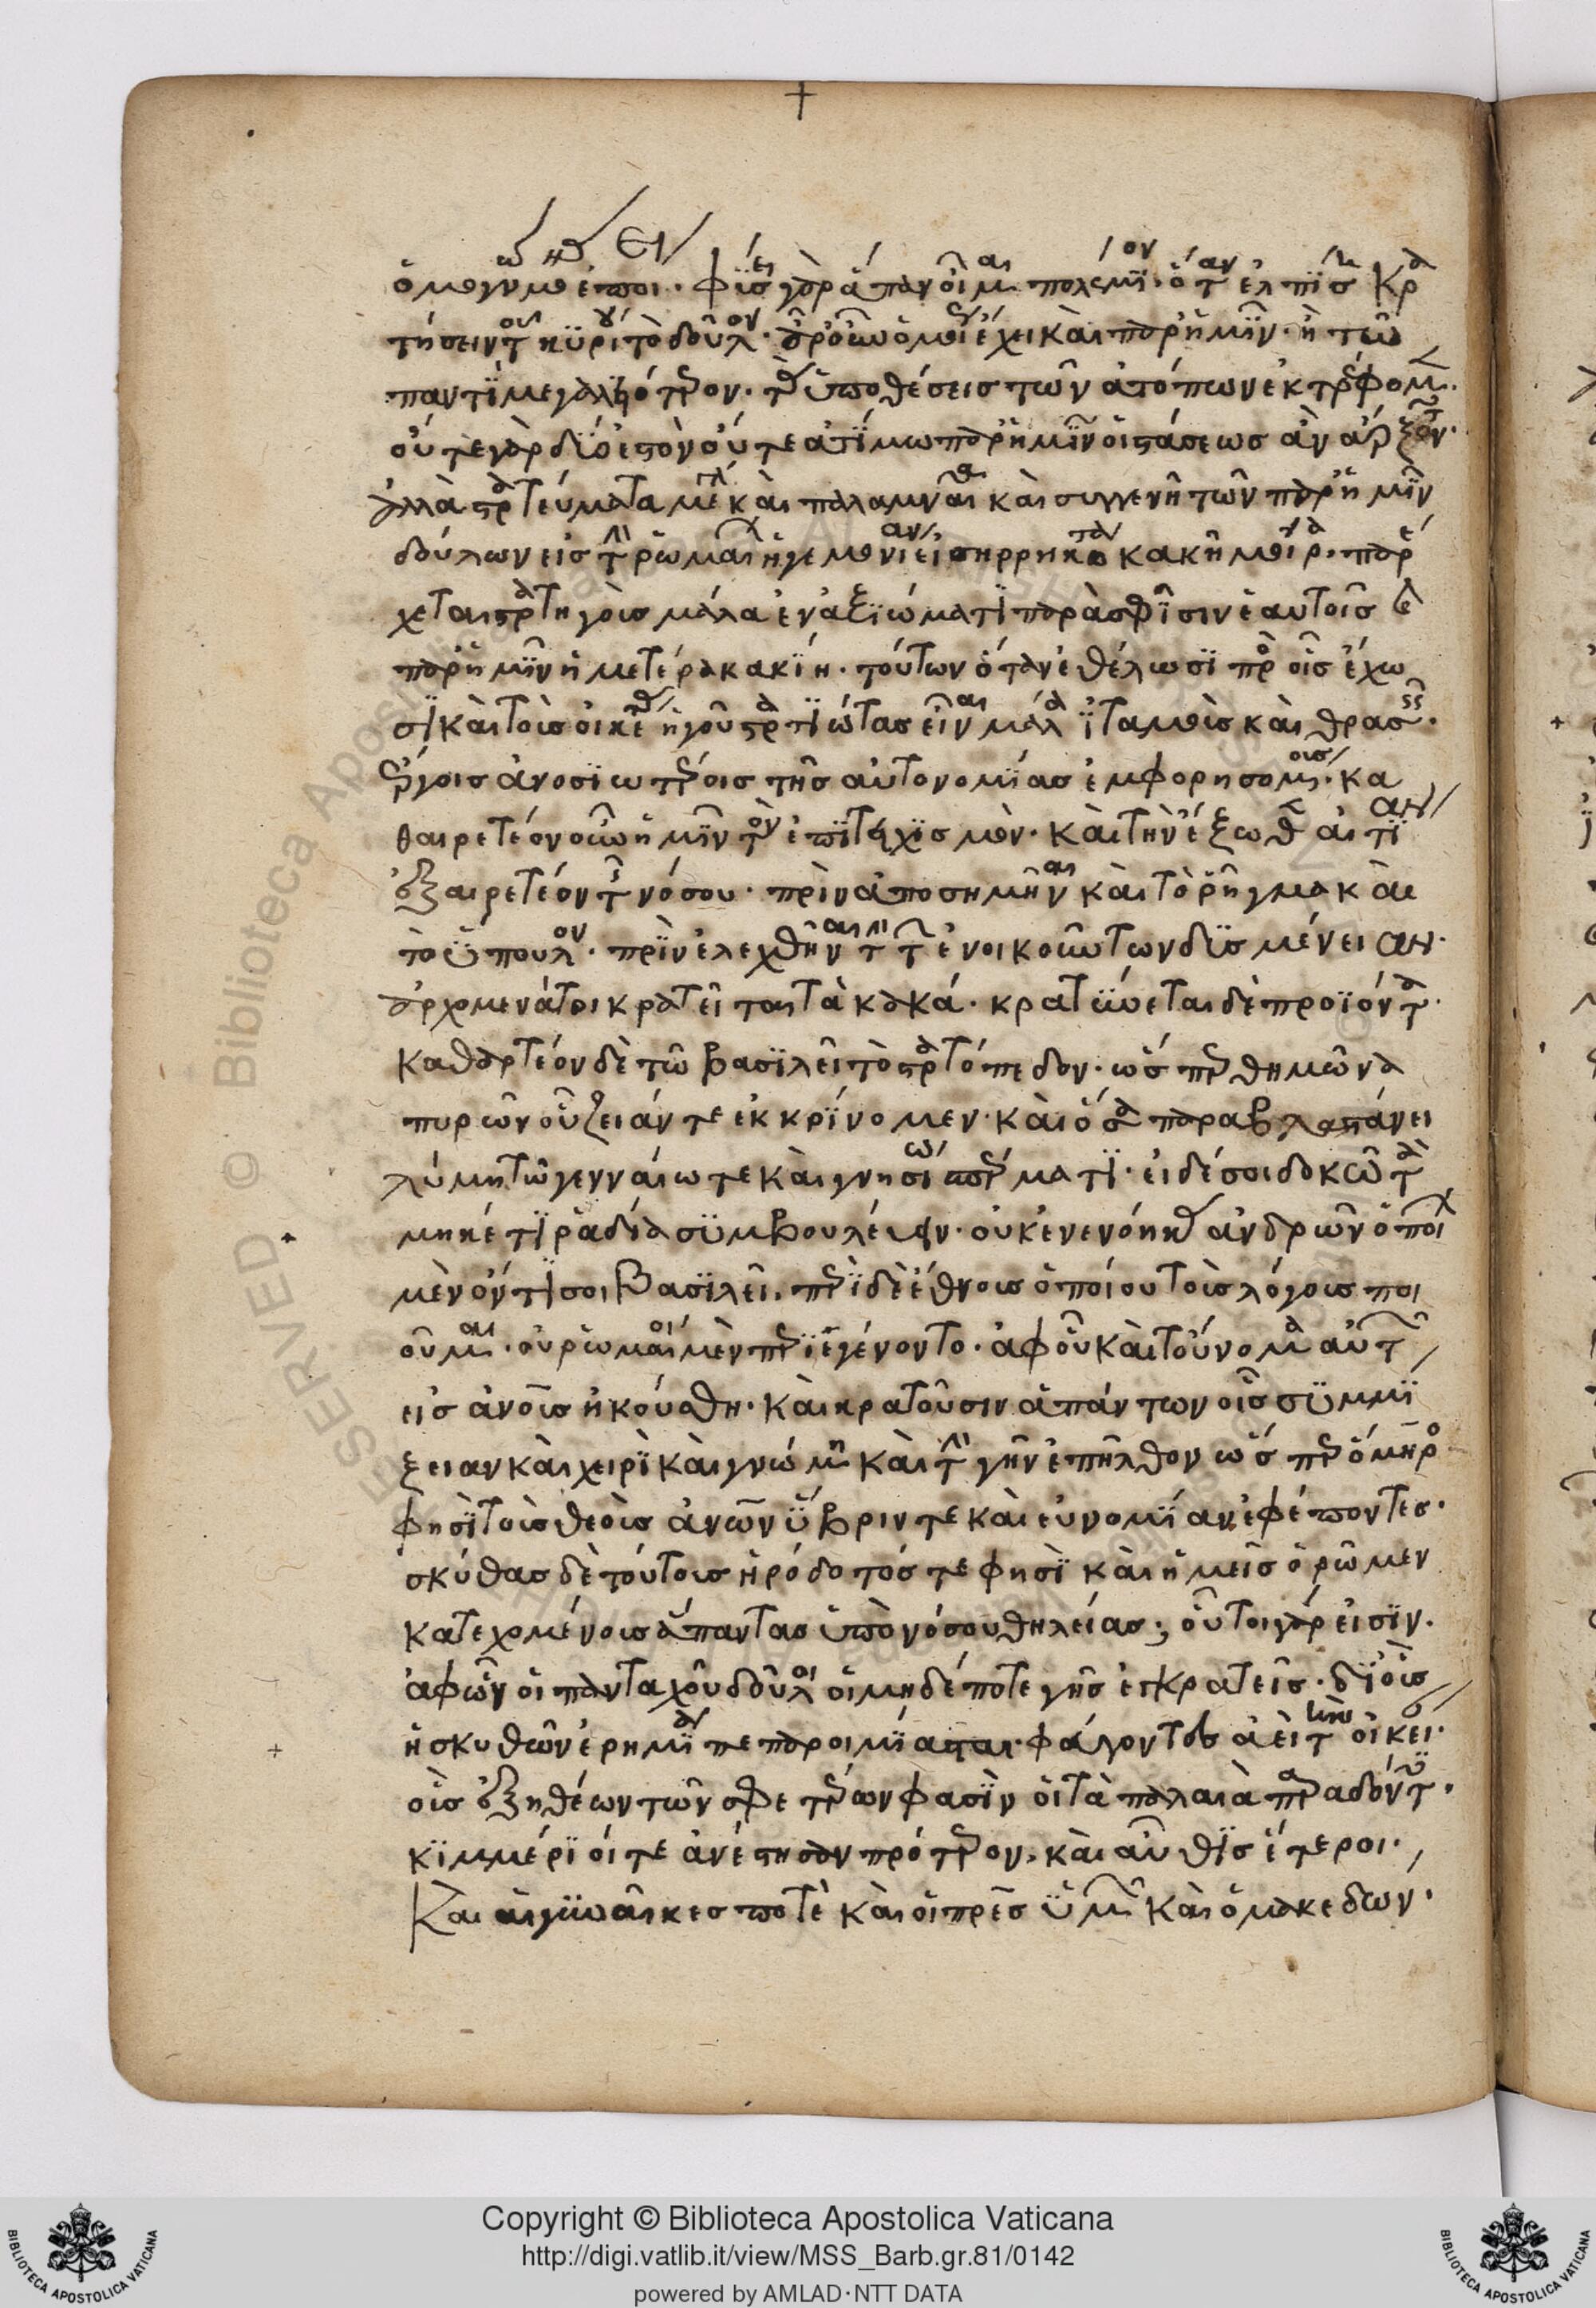 ὁμογνωμονεῖν ἔποι. φύσει γὰρ ἅπαν οἶμαι πολέμιον· ὅταν ἐλπίσῃ κρα
τήσειν τοῦ κυρίου τὸ δοῦλον. ἆρ' οὖν ὁμοίως ἔχει καὶ παρ' ἡμῖν· ἢ τῶ
παντὶ μεγαλειότερον τὰς ὑποθέσεις τῶν ἀτόπων ἐκτρέφομεν.
οὔτε γὰρ δύ' ἐστὸν οὔτε ἀτίμω παρ' ἡμῖν οἱ στάσεως ἂν ἄρξοντες.
ἀλλὰ στρατεύματα μεγάλα καὶ παλαμναῖα καὶ συγγενῆ τῶν παρ' ἡμῖν
δούλων εἰς τὴν ῥωμαίων ἡγεμονίαν εἰσηρρηκότα κακῆ μοίρα. παρέ
χεται στρατηγοὺς μάλα ἐν ἀξιώματι παρὰ σφίσιν ἑαυτοῖς καὶ
παρ' ἡμῖν ἡμετέρα κακίη. τούτων ὅταν ἐθέλωσι πρὸς οἷς ἔχω
σι καὶ τοὺς οἰκέτας ἡγοῦ στρατιώτας εἶναι μάλα ἰταμοὺς καὶ θρασεῖς.
ἔργοις ἀνοσιωτέροις τῆς αὐτονομίας ἐμφορησομένους. κα
θαιρετέον οὖν ἡμῖν τὸν ἐπιτειχισμόν. καὶ τὴν ἔξωθεν αἰτίαν
ἐξαιρετέον τῆς νόσου. πρὶν ἀποσημῆναι καὶ τὸ ῥῆγμα καὶ
τὸ ὕπουλον. πρὶν ἐλεχθῆναι τὴν τῶν ἐνοικούντων δυσμένειαν.
ἀρχόμενα τοι κρατεῖται τὰ κακά. κρατύνεται δὲ προϊόντα.
καθαρτέον δὲ τῶ βασιλεῖ τὸ στρατόπεδον. ὥσπερ θημῶνα
πυρῶν οὗ ζειάν τε ἐκκρίνομεν. καὶ ὅσα παραβλαστάνει
λύμη τῶ γενναίω τε καὶ γνησίω σπέρματι. εἰ δέ σοι δοκῶ τὰ
μηκέτι ῥάδια συμβουλεύειν. οὐκ ἐνενόησας ἀνδρῶν ὁποίων
μὲν ὄντι σοι βασιλεῖ. περὶ δὲ ἔθνους ὁποίου τοὺς λόγους ποι
οῦμαι. οὐ ῥωμαῖοι μὲν περιεγένοντο. ἀφ' οὗ καὶ τοὔνομα αὐτῶν
εἰς ἀνους ἠκούσθη. καὶ κρατοῦσιν ἁπάντων οἷς συμμί
ξειαν καὶ χειρὶ καὶ γνώμη καὶ τὴν γῆν ἐπῆλθον ὥσπερ ὅμηρος
φησὶ τοὺς θεοὺς ἀνων ὕβριν τε καὶ εὐνομίαν ἐφέποντες.
σκύθας δὲ τούτους ἡρόδοτός τε φησὶ καὶ ἡμεῖς ὁρῶμεν
κατεχομένους ἅπαντας ὑπὸ νόσου θηλείας· οὗτοι γάρ εἰσιν.
ἀφ' ὧν οἱ πανταχοῦ δοῦλοι οἱ μηδέποτε γῆς ἐγκρατεῖς. δι' οὓς
ἡ σκυθῶν ἐρημία πεπαροιμίασται. φεύγοντες ἀεὶ τὴν οἰκείαν.
οὓς ἐξ ἠθέων τῶν σφετέρων φασὶν οἱ τὰ παλαιὰ παραδόντες.
κιμμέριοί τε ἀνέστησαν πρότερον, καὶ αὖθις ἕτεροι.
Καὶ αἱ γυναῖκες ποτὲ καὶ οἱ πρες ὑμῶν καὶ ὁ μακεδων.
Copyright © Biblioteca Apostolica Vaticana
http://digi.vatlib.it/view/MSS_Barb.gr.81/0142
powered by AMLAD·NTT DATA
BIBLIOTECA APOSTOLICA VATICANA
BIBLIOTECA APOSTOLICA VATICANA